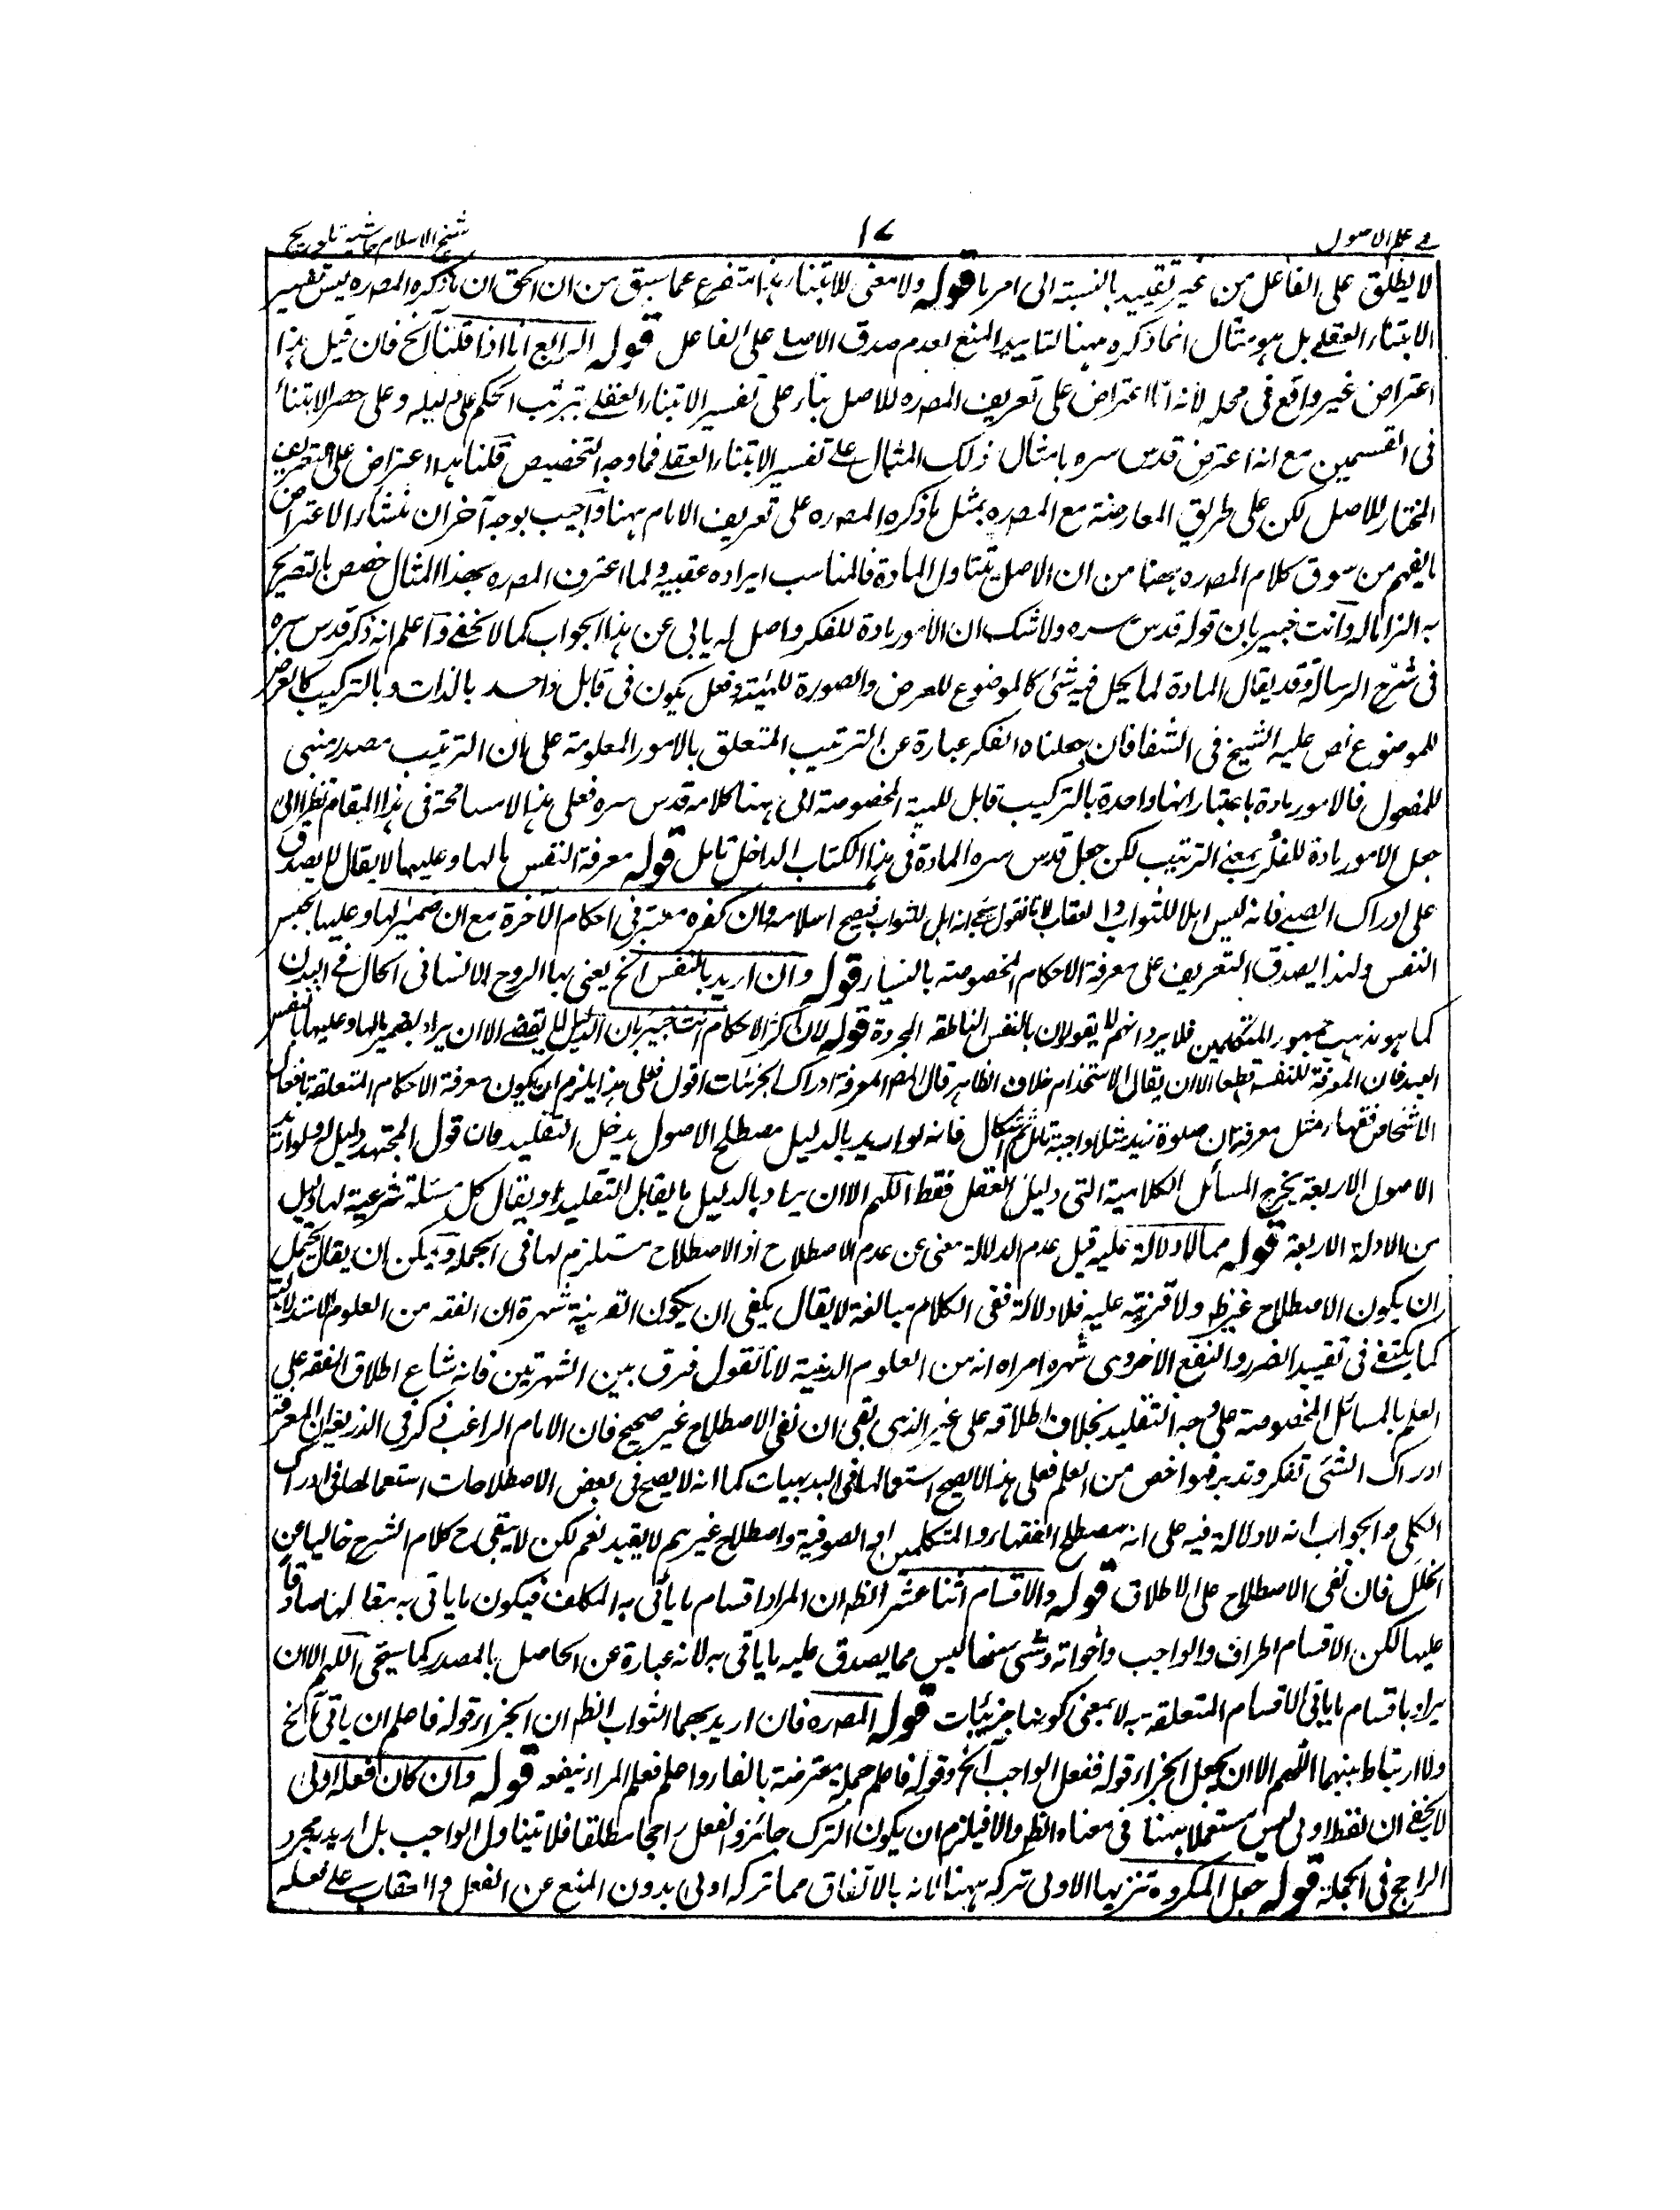 في علم الاصول
١٧
شيخ الاسلام حاشية تلويح
لا يطلق على الفاعل من غير تقييد بالنسبة الى امر ما قوله ولا معنى للابتناء هذا متفرع عما سبق من ان الحق ان ما ذكره المصره ليس تفسير
الابتناء العقلے بل هو مثال انما ذكره ههنا لتاييد المنع لعدم صدق الاصل على الفاعل قوله الرابع انا اذا قلنا الخ فان قيل هذا
اعتراض غير واقع فى محله لانه اما اعتراض على تعريف المصره للاصل بناء على تفسير الابتناء العقلے بترتب الحكم على دليله وعلى حصر الابتناء
فى القسمين مع انه اعترض قدس سره بامثال ذلك المثال على تفسير الابتناء العقلے فما وجه التخصيص قلنا هذا اعتراض على التعريف
المختار للاصل لكن على طريق المعارضة مع المصره بمثل ما ذكره المصره على تعريف الامام ههنا واجيب بوجه آخر ان منشاء الاعتراض
ما يفهم من سوق كلام المصره بهنا من ان الاصل يتناول المادة فالمناسب ايراده عقيبه ولما اعترف المصره بهذا المثال خصص بالتصريح
به الزاما له وانت خبير بان قوله قدس سره ولا شك ان الامور مادة للفكر واصل له يابى عن هذا الجواب كما لا يخفے واعلم انه ذكر قدس سره
فى شرح الرسالة وقد يقال المادة لما يحل فيه شئ كالموضوع للعرض والصورة للهيئة وفعل يكون فى قابل واحد بالذات وبالتركيب كالعرض
للموضوع نص عليه الشيخ فى الشفا فان جعلناه الفكر عبارة عن الترتيب المتعلق بالامور المعلومة على ان الترتيب مصدر مبنى
للمفعول فالامور مادة باعتبار انها واحدة بالتركيب قابل للهيئة المخصوصة الى ههنا كلامه قدس سره فعلى هذا لا مسامحة فى هذا المقام نظرا الى
جعل الامور مادة للفكر بمعنى الترتيب لكن جعل قدس سره المادة فى هذا الكتاب الداخل تامل قوله معرفة النفس ما لها وعليها لا يقال لا يصدق
على ادراك الصبے فانه ليس اهلا للثواب والعقاب لانا نقول انه اهل للثواب فيصح اسلامه وان كفره معتبر فى احكام الآخرة مع ان ضمير لها وعليها لجنس
النفس ولهذا يصدق التعريف على معرفة الاحكام المخصوصة بالنساء قوله وان اريد بالنفس الخ يعنى بها الروح الانسانى الحال فے البدن
كما هو مذهب جمهور المتكلمين فلا يرد انهم لا يقولون بالنفس الناطقة المجردة قوله لان اكثر الاحكام انت خبير بان الدليل لا يقتضے الا ان يراد بضمير ما لها وعليها النفس
العبد فان المعرفة للنفس قطعا الا ان يقال الاستخدام خلاف الظاهر قال المصر المعرفة ادراك الجزئيات اقول فعلى هذا يلزم ان يكون معرفة الاحكام المتعلقة بافعال
الاشخاص فقها مثل معرفة ان صلوة زيد مثلا واجبة تامل ثم اشكال فانه لو اريد بالدليل مصطلح الاصول يدخل التقليد فان قول المجتهد دليل له ولو اريد
الاصول الاربعة يخرج المسائل الكلامية التى دليل العقل فقط اللهم الا ان يراد بالدليل ما يقابل التقليد او يقال كل مسئلة شرعية لها دليل
من الادلة الاربعة قوله مما لا دلالة عليه قيل عدم الدلالة مغنى عن عدم الاصطلاح اذ الاصطلاح مستلزم لها فى الجملة ويمكن ان يقال يحتمل
ان يكون الاصطلاح غيره ولا قرينة عليه فلا دلالة ففى الكلام مبالغة لا يقال يكفى ان يكون القرينة شهرة ان الفقه من العلوم الاستدلالية
كما يكتفے فى تقييد الضرر والنفع الاخروى شهرة امره انه من العلوم الدينية لانا نقول فرق بين الشهرتين فانه شاع اطلاق الفقه على
العلم بالمسائل المخصوصة على وجه التقليد بخلاف اطلاقه على غير الدينى بقى ان نفى الاصطلاح غير صحيح فان الامام الراغب ذكر فى الذريعة ان المعرفة
ادراك الشئ بتفكر وتدبر فهو اخص من العلم فعلى هذا لا يصح استعمالها فى البديهيات كما انه لا يصح فى بعض الاصطلاحات استعمالها فى ادراك
الكلى والجواب انه لا دلالة فيه على انه مصطلح الفقهاء والمتكلمين او الصوفية واصطلاح غيرهم لا يفيد نعم لكن لا يبقى ح كلام الشرح خاليا عن
الخلل فان نفى الاصطلاح على الاطلاق قوله والاقسام اثنا عشر الظ ان المراد اقسام ما يأتى به المكلف فيكون ما ياتى به مقابلها صادقا
عليها لكن الاقسام اطراف والواجب واخواته وشئ منها ليس مما يصدق عليه ما ياتى به لانه عبارة عن الحاصل بالمصدر كما سيجى اللهم الا ان
يراد باقسام ما ياتى الاقسام المتعلقة به لا بمعنى كونها جزئيات قوله المصره فان اريد بهما الثواب الظ ان الجزاء قوله فاعلم ان ياتى الخ
ولا ارتباط بينهما اللهم الا ان يجعل الجزاء قوله ففعل الواجب الخ وقوله فاعلم جملة معترضة بالفاء واعلم فعلم المراء ينفعه قوله وان كان فعله اولى
لا يخفے ان لفظ اولى ليس مستعملا ههنا فى معناه الظ والا فيلزم ان يكون الترك جائزا والفعل راجحا مطلقا فلا يتناول الواجب بل اريد مجرد
الراجح فى الجملة قوله جعل المكروه تنزيها الاولى تركه ههنا لانه بالاتفاق مما تركه اولى بدون المنع عن الفعل والعقاب على فعله